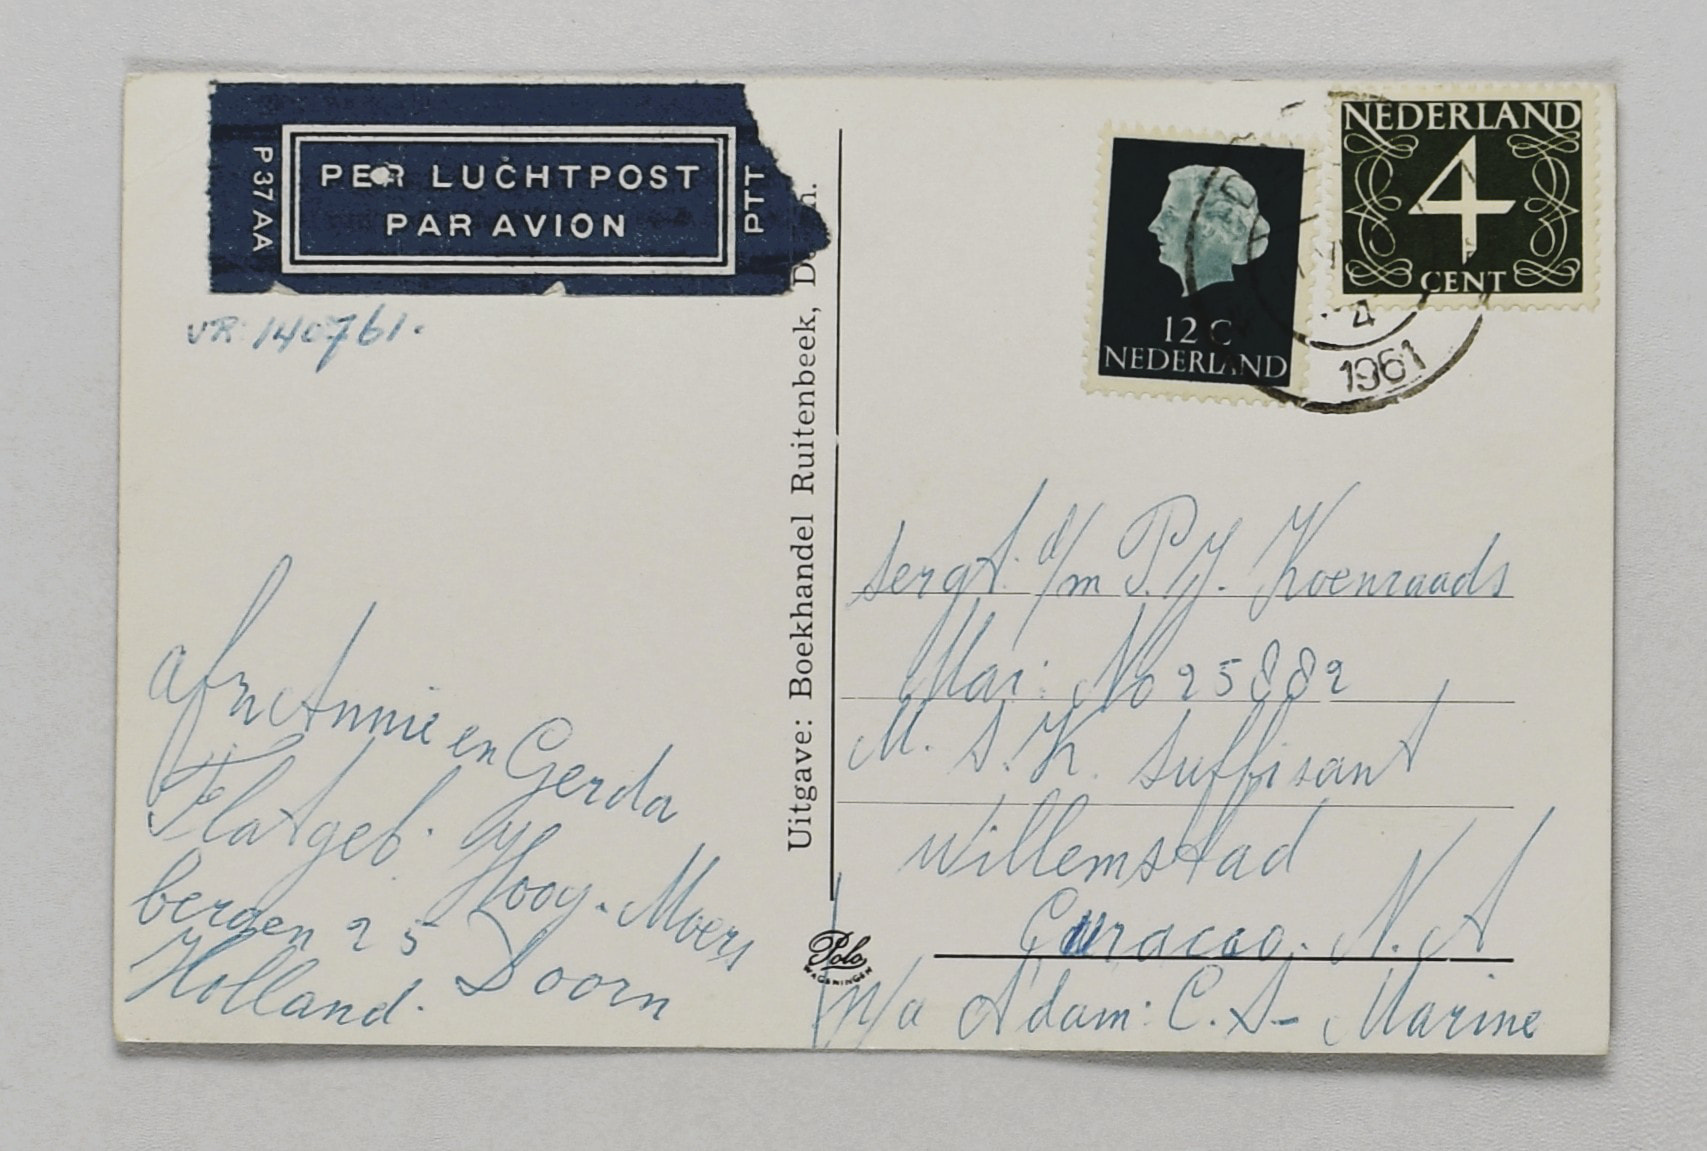 P37AA
PER LUCHTPOST
PAR AVION
PTT
VR: 140761.
afz Annie en Gerda
Flatgeb. Hoog-Moers
bergen 25 Doorn
Holland.
Uitgave: Boekhandel Ruitenbeek, D n.
Polo
WAGENINGEN
12 C
NEDERLAND
NEDERLAND
4
CENT
4
1961
sergt. d/m P.J. Koenraads
Mar: No 25882
M. S. K. Suffisant
Willemstad
Curacao. N. A
p/a A'dam: C. S- Marine